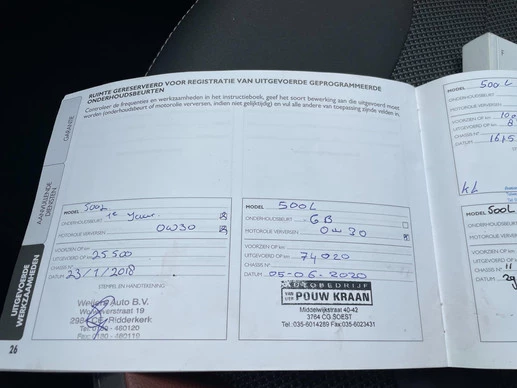 RUIMTE GERESERVEERD VOOR REGISTRATIE VAN UITGEVOERDE GEPROGRAMMEERDE
ONDERHOUDSBEURTEN
Controleer de frequenties en werkzaamheden in het instructieboek, geef het soort bewerking aan die uitgevoerd moet
worden (onderhoudsbeurt of motorolie verversen, indien niet gelijktijdig) en vul alle andere van toepassing zijnde velden in.
GARANTIE
AANVULLENDE
DIENSTEN
UITGEVOERDE
WERKZAAMHEDEN
MODEL 500L
ONDERHOUDSBEURT 1e
MOTOROLIE VERVERSEN 0W30
VOORZIEN OP km
UITGEVOERD OP km 25500
CHASSIS N°
DATUM 23/1/2018
STEMPEL EN HANDTEKENING
Auto B.V.
19
Ridderkerk
- 460120
- 460110
26
MODEL 500L
ONDERHOUDSBEURT GB
MOTOROLIE VERVERSEN 0W30
VOORZIEN OP km
UITGEVOERD OP km 74020
CHASSIS N°
DATUM 05-06-2020
AUTOBEDRIJF
POUW KRAAN
Middelwijkstraat 40-42
3764 CG SOEST
Tel. 035-6014289 Fax 035-6023431
MODEL 500L
ONDERHOUDSBEURT
MOTOROLIE VERVERSEN
VOORZIEN OP km
UITGEVOERD OP km
CHASSIS N°
DATUM
MODEL 500L
ONDERHOUDSBEURT
MOTOROLIE VERVERSEN
VOORZIEN OP km
UITGEVOERD OP km
CHASSIS N°
DATUM